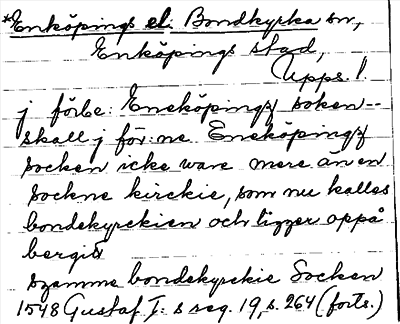 *Enköpings el. Bondkyrka sn,
Enköpings stad,
Upps. l.
j förbe: Eneköpingz soken --
skall j för:ne Eneköpingz
socken icke ware mere än en
sockne kirckie, som nu kalles
bondekyrekien och ligger oppå
bergit
szamme bondekyrekie Socken
1548 Gustaf I:s reg. 19, s. 264 (forts.)